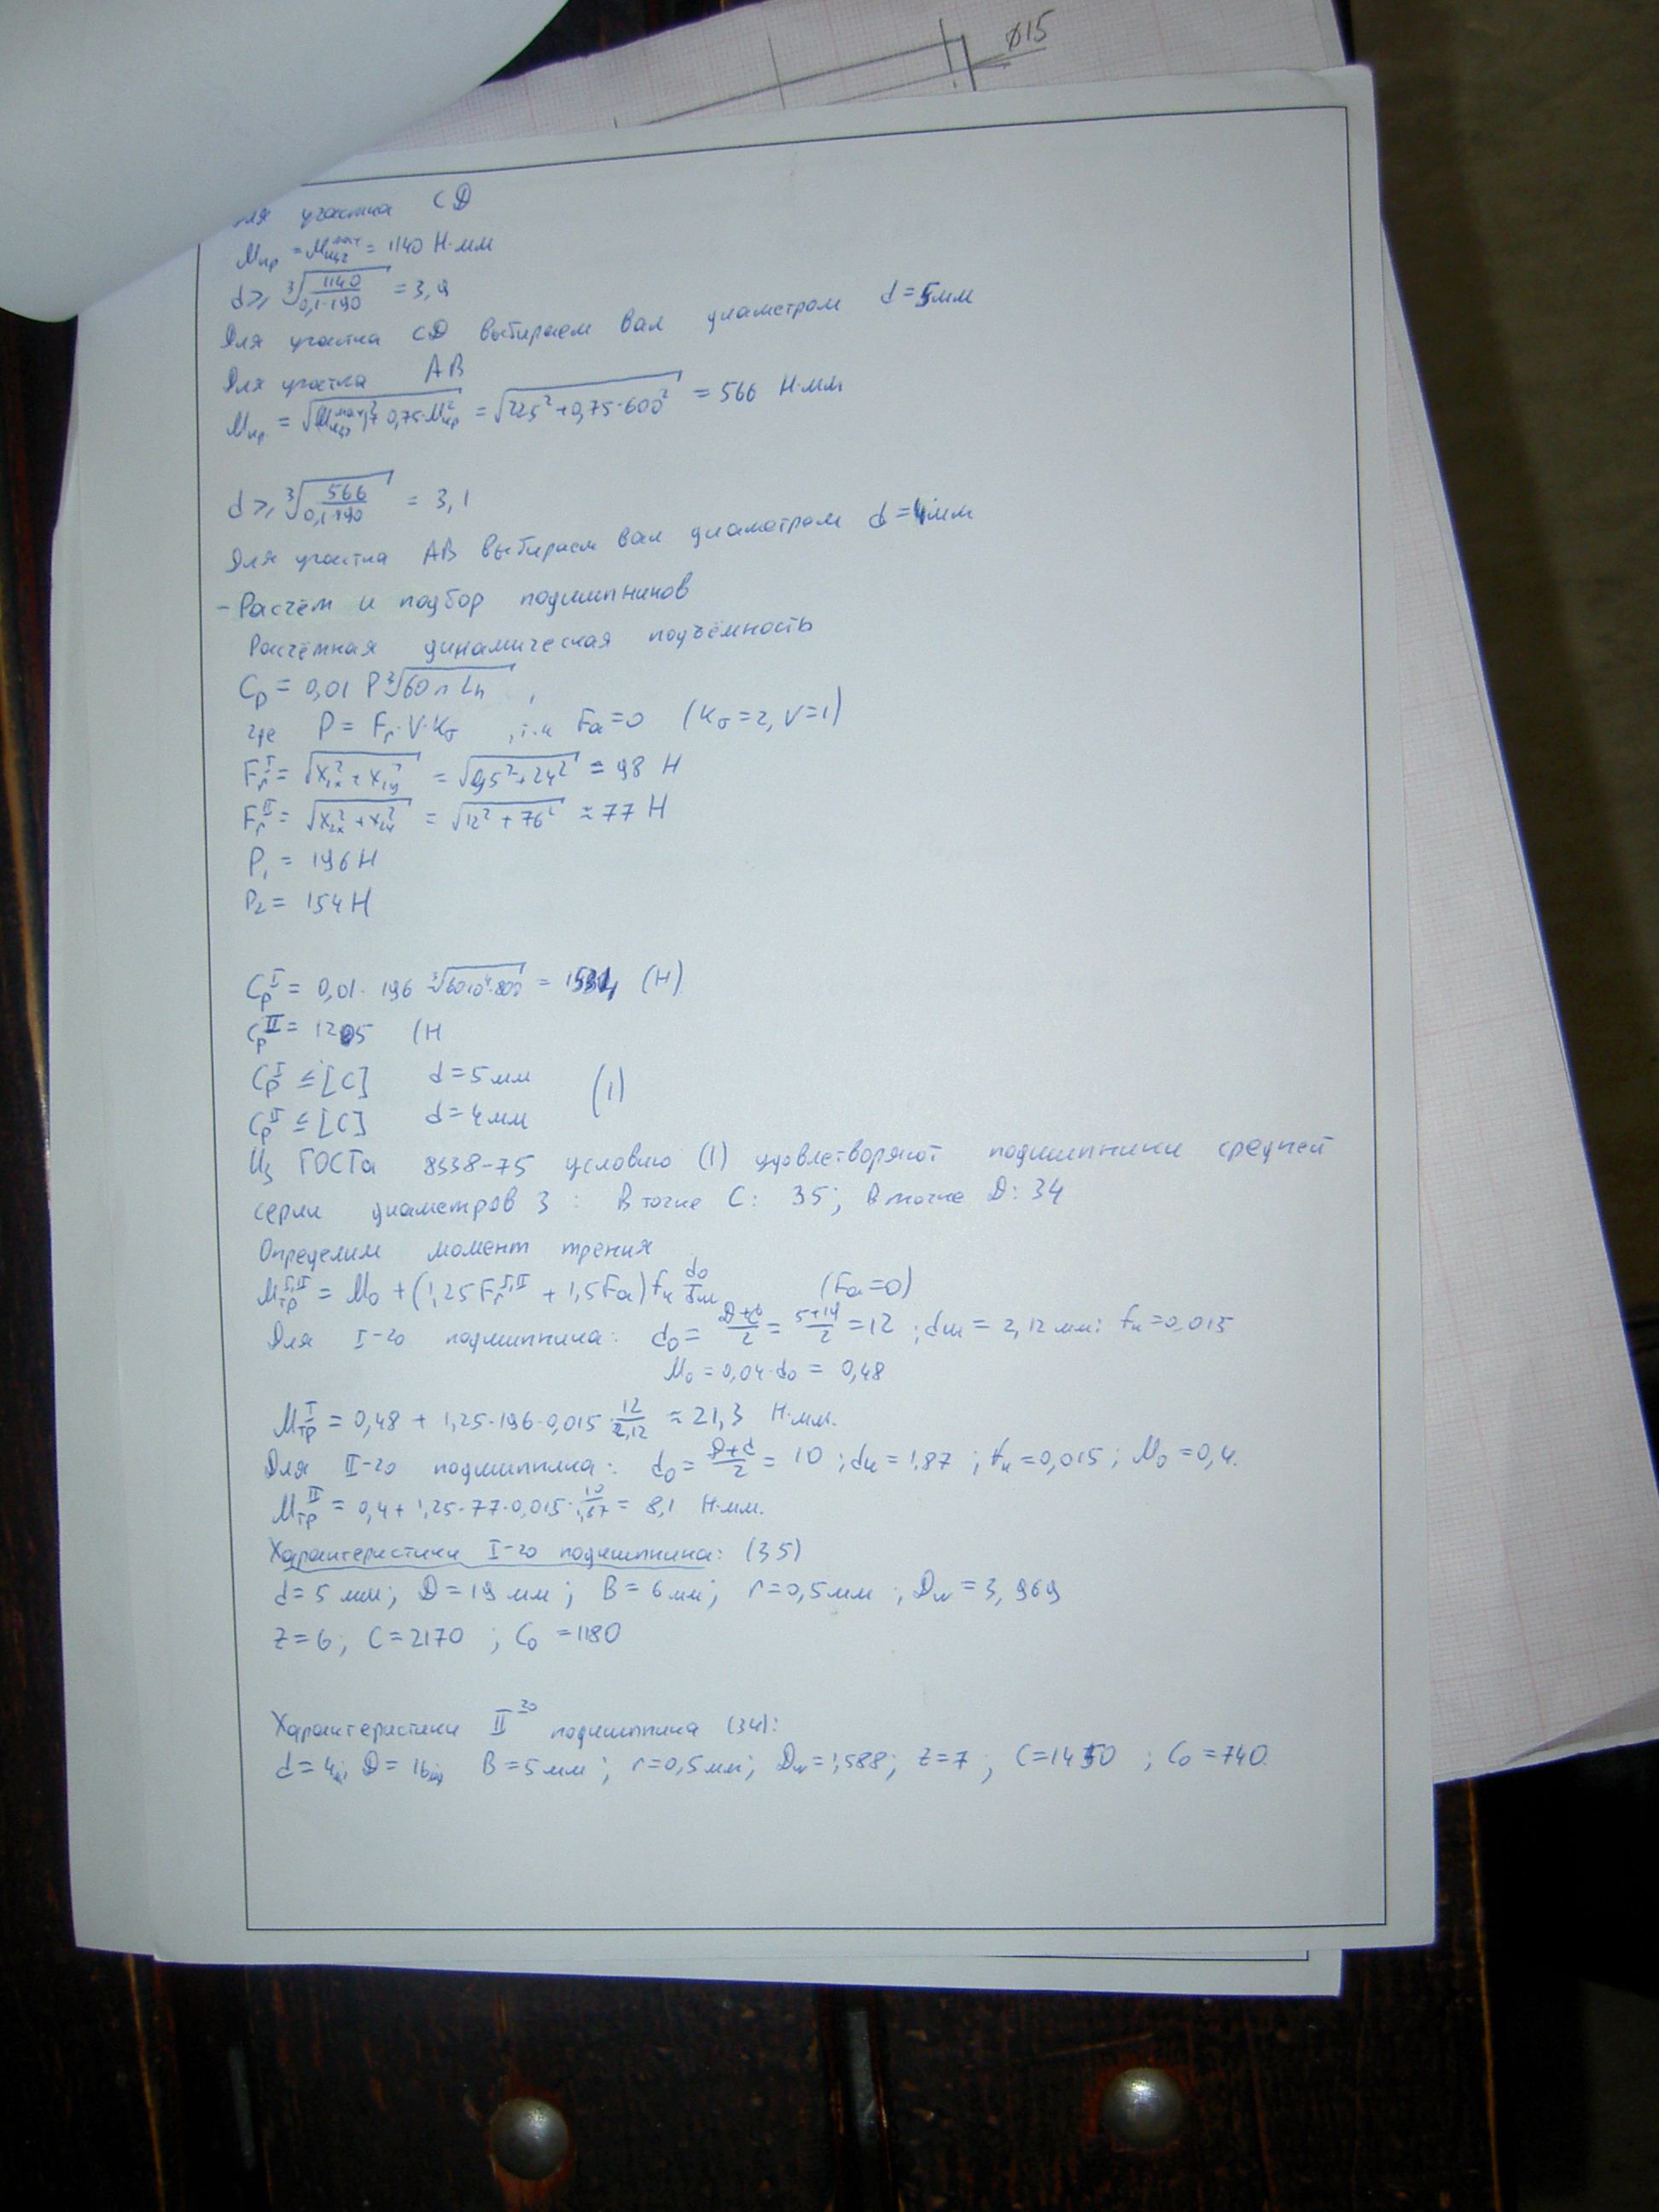 ⌀15
для участка CD
Mпр = Mизг^max = 1140 Н·мм
d ≥ ∛(1140/(0,1·190)) = 3,9
Для участка CD выбираем вал диаметром d = 5мм
Для участка AB
Mпр = √((Mизг^max)² + 0,75·Mкр²) = √(225² + 0,75·600²) = 566 Н·мм
d ≥ ∛(566/(0,1·190)) = 3,1
Для участка AB выбираем вал диаметром d = 4мм
- Расчём и подбор подшипников
Расчётная динамическая подъёмность
Cp = 0,01 P ∛(60 n Lh) ,
где P = Fr·V·Kσ , т.к Fa = 0 (Kσ = 2, V = 1)
Fr^I = √(X1x² + X1y²) = √(95² + 24²) = 98 Н
Fr^II = √(X2x² + X2y²) = √(12² + 76²) ≈ 77 Н
P1 = 196 Н
P2 = 154 Н
Cp^I = 0,01 · 196 ∛(60·10⁴·800) = (Н)
Cp^II = 1205 (Н
Cp^I ≤ [C] d = 5 мм (1)
Cp^II ≤ [C] d = 4 мм
Из ГОСТа 8338-75 условию (1) удовлетворяют подшипники средней
серии диаметров 3 : В точке C: 35; В точке D: 34
Определим момент трения
Mтр^I,II = M0 + (1,25Fr^I,II + 1,5Fa) fк d0/dш (Fa = 0)
Для I-го подшипника: d0 = (D+d)/2 = (5+19)/2 = 12 ; dш = 2,12 мм; fк = 0,015
M0 = 0,04·d0 = 0,48
Mтр^I = 0,48 + 1,25·196·0,015·12/2,12 ≈ 21,3 Н·мм.
Для II-го подшипника: d0 = (D+d)/2 = 10 ; dк = 1.87 ; fк = 0,015 ; M0 = 0,4.
Mтр^II = 0,4 + 1,25·77·0,015·10/1,87 = 8,1 Н·мм.
Характеристики I-го подшипника: (35)
d = 5 мм; D = 19 мм; B = 6 мм; r = 0,5 мм ; Dw = 3,969
Z = 6; C = 2170 ; C0 = 1180
Характеристики II го подшипника (34):
d = 4; D = 16 B = 5 мм; r = 0,5 мм; Dw = ,588; Z = 7 ; C = 1450 ; C0 = 740.